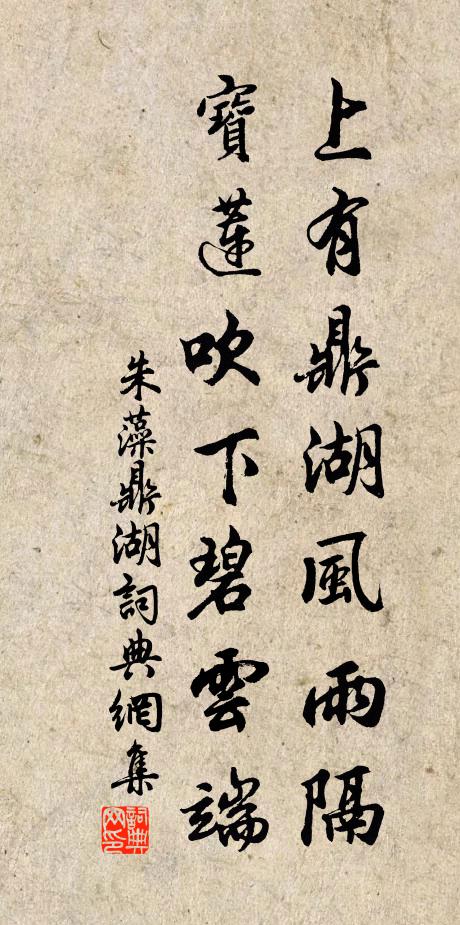 上有鼎湖風雨隔
寶蓮吹下碧雲端
朱藻鼎湖詞典網集
詞典网印